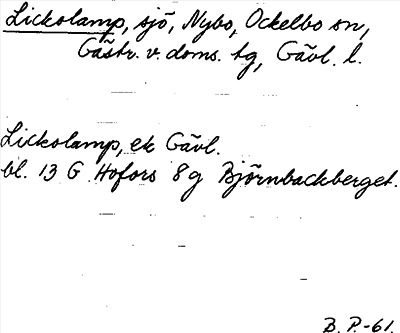 Lickolamp, sjö, Nybo, Ockelbo sn,
Gästr. v. doms. tg, Gävl. l.
Lickolamp, ek Gävl.
bl. 13 G Hofors 8g Björnbackberget.
B. P.-61.